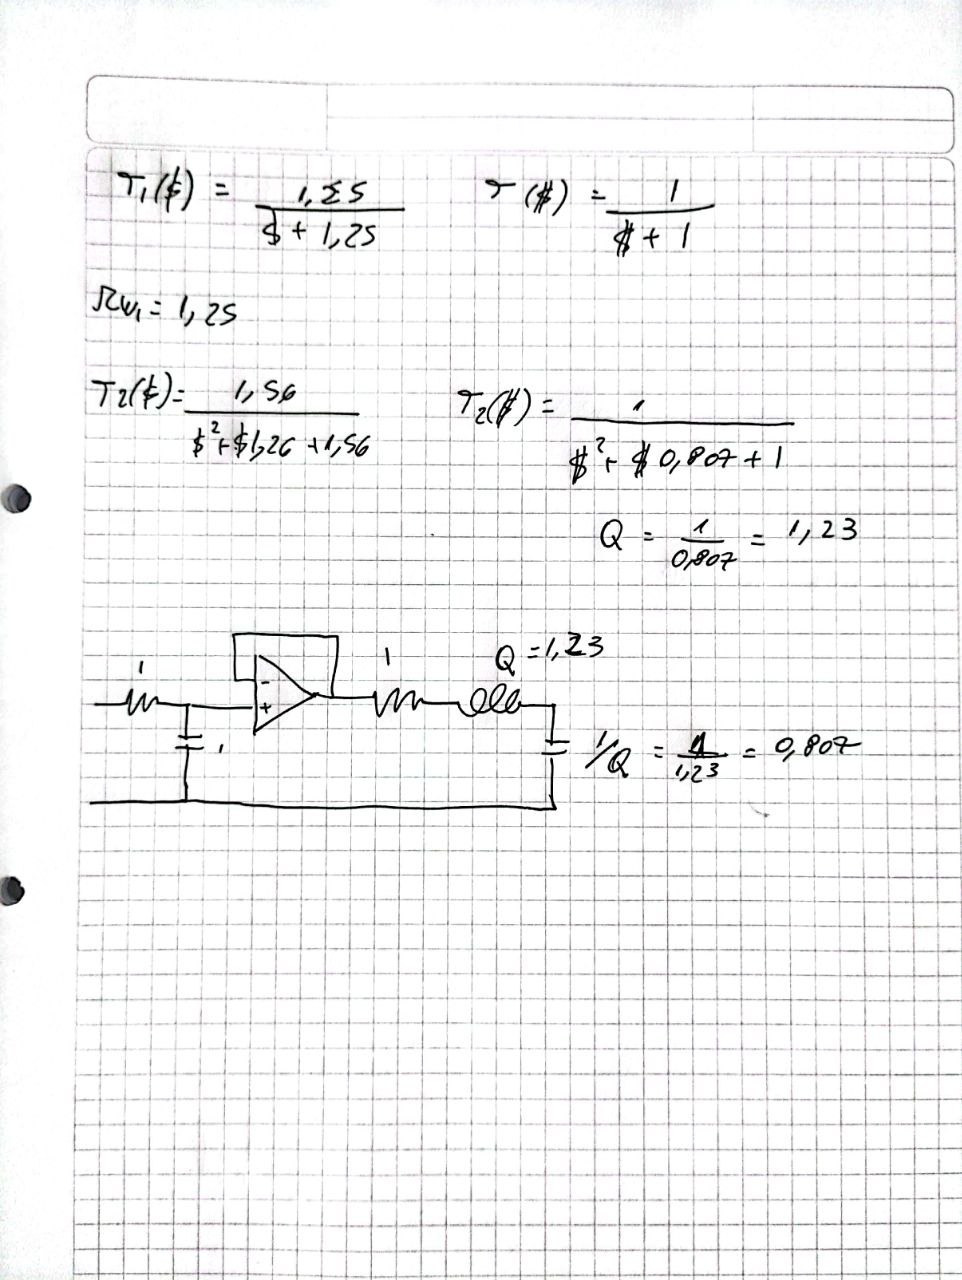 T₁($) = 1,25 / ($ + 1,25)    T($) = 1 / ($ + 1)
Ωw₁ = 1,25
T₂($) = 1,56 / ($² + $1,26 + 1,56)    T₂($) = 1 / ($² + $ 0,807 + 1)
Q = 1 / 0,807 = 1,23
1    1    Q = 1,23
- +
1    1/Q = 1 / 1,23 = 0,807